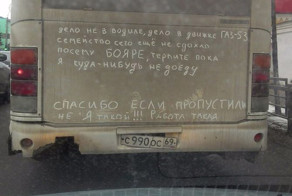 дело не в водиле, дело в данных ГАЗ-53
семейство сего ещё не сделал
посему БОЯРЕ, терпите пока
я куда-нибудь не доеду
СПАСИБО ЕСЛИ ПРОПУСТИЛИ
НЕ "Я ТАКОЙ"!!! РАБОТА ТАКАЯ
С990ОС 69